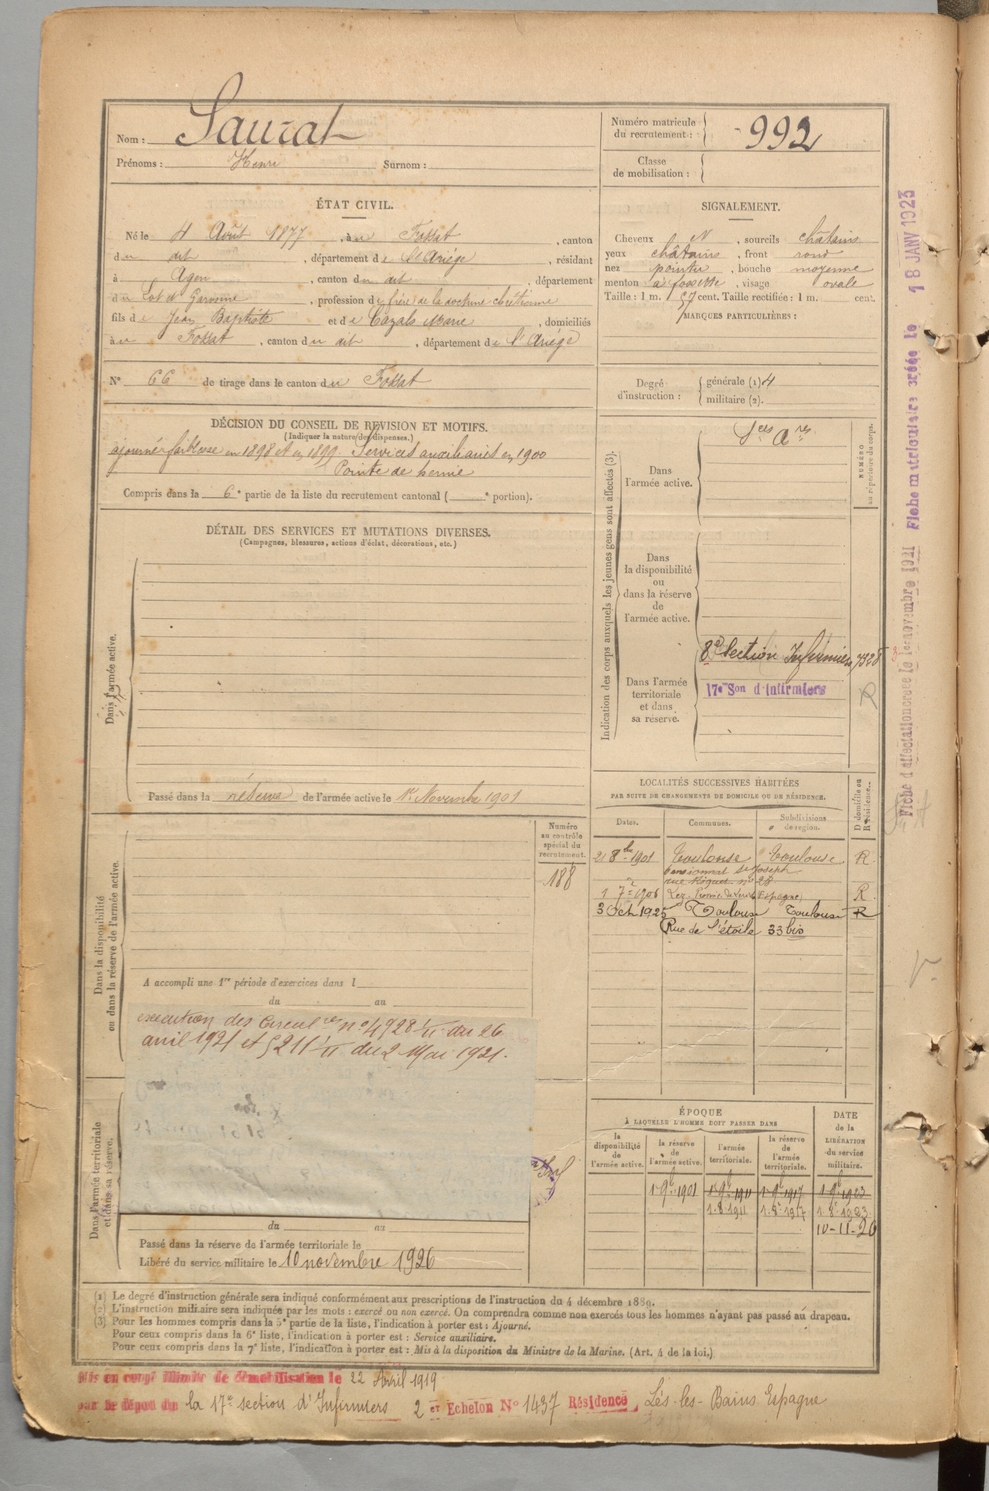 Nom : Saurat
Prénoms : Henri Surnom :
Numéro matricule du recrutement : 992
Classe de mobilisation :
ÉTAT CIVIL.
Né le 4 Août 1877, à Fossat, canton
du dit, département de l'Ariège, résidant
à Agen, canton du dit, département
du Lot et Garonne, profession de frère de la doctrine chrétienne
fils de Jean Baptiste et de Cazals Marie, domiciliés
à Fossat, canton du dit, département de l'Ariège
N° 66 de tirage dans le canton du Fossat
SIGNALEMENT.
Cheveux N, sourcils châtains
yeux châtains, front rond
nez pointu, bouche moyenne
menton à fossette, visage ovale
Taille : 1 m. 57 cent. Taille rectifiée : 1 m. cent.
MARQUES PARTICULIÈRES :
Degré d'instruction : générale (1) 4
militaire (2).
DÉCISION DU CONSEIL DE RÉVISION ET MOTIFS.
(Indiquer la nature des dispenses.)
ajourné faiblesse en 1898 et en 1899 Services auxiliaires en 1900
Pointe de hernie
Compris dans la 6e partie de la liste du recrutement cantonal ( e portion).
DÉTAIL DES SERVICES ET MUTATIONS DIVERSES.
(Campagnes, blessures, actions d'éclat, décorations, etc.)
Dans l'armée active.
Passé dans la réserve de l'armée active le 1er Novembre 1901
Indication des corps auxquels les jeunes gens sont affectés (3).
NUMÉRO au répertoire du corps.
Dans l'armée active.
Ces Ares
Dans la disponibilité ou dans la réserve de l'armée active.
Dans l'armée territoriale et dans sa réserve.
8e Section Infirmiers 7328
17e Son d'Infirmiers
R
Numéro au contrôle spécial du recrutement.
188
Dans la disponibilité ou dans la réserve de l'armée active.
A accompli une 1re période d'exercices dans l
du au
exécution des Circulres n° 4928/II du 26
avril 1921 et 5211/II du 2 Mai 1921.
Dans l'armée territoriale et dans sa réserve.
du au
Passé dans la réserve de l'armée territoriale le
Libéré du service militaire le 10 novembre 1926
LOCALITÉS SUCCESSIVES HABITÉES
PAR SUITE DE CHANGEMENTS DE DOMICILE OU DE RÉSIDENCE.
Dates. Communes. Subdivisions de région. D domicile ou R résidence.
21 8bre 1901 Toulouse Toulouse R
pensionnat St Joseph
rue Riquet n° 28
1 7bre 1906 Lez (Espagne) R
3 Oct 1925 Toulouse Toulouse R
Rue de l'étoile 33 bis
ÉPOQUE
À LAQUELLE L'HOMME DOIT PASSER DANS
la disponibilité de l'armée active. la réserve de l'armée active. l'armée territoriale. la réserve de l'armée territoriale. DATE de la LIBÉRATION du service militaire.
1-9b-1901 1-9-1911 1-9-1917 1-9-1923
1.8.1911 1.8.1917 1.8.1923
10-11-26
(1) Le degré d'instruction générale sera indiqué conformément aux prescriptions de l'instruction du 4 décembre 1889.
(2) L'instruction militaire sera indiquée par les mots : exercé ou non exercé. On comprendra comme non exercés tous les hommes n'ayant pas passé au drapeau.
(3) Pour les hommes compris dans la 5e partie de la liste, l'indication à porter est : Ajourné.
Pour ceux compris dans la 6e liste, l'indication à porter est : Service auxiliaire.
Pour ceux compris dans la 7e liste, l'indication à porter est : Mis à la disposition du Ministre de la Marine. (Art. 4 de la loi.)
Mis en congé illimité de démobilisation le 22 Avril 1919
par le dépôt du la 17e section d'Infirmiers 2 er Echelon N° 1437 Résidence Lés-les-Bains Espagne
Fiche d'affectation créée le 1er novembre 1921 Fiche matriculaire créée le 18 JANV 1923